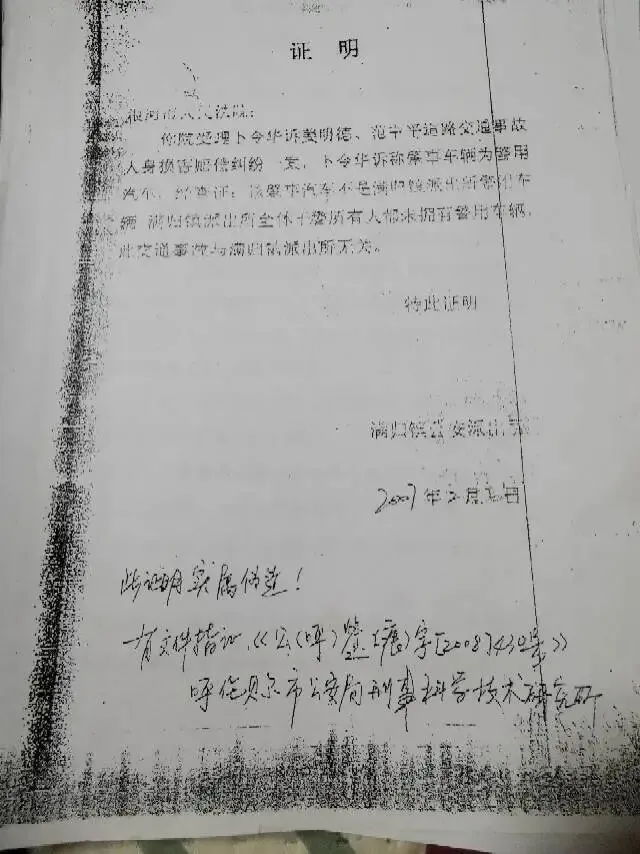 证 明
根河市人民法院:
你院受理卜令华诉姜明德、范中平道路交通事故
人身损害赔偿纠纷一案,卜令华诉称肇事车辆为警用
汽车,经查证:该肇事汽车不是满归镇派出所警用车
辆 满归镇派出所全体干警所有人都未拥有警用车辆,
此交通事故与满归镇派出所无关。
特此证明
满归镇公安派出所
2007年2月 日
此证明实属伪造!
有文件指证《公(呼)鉴(痕)字[2008]430号》
呼伦贝尔市公安局刑事科学技术研究所